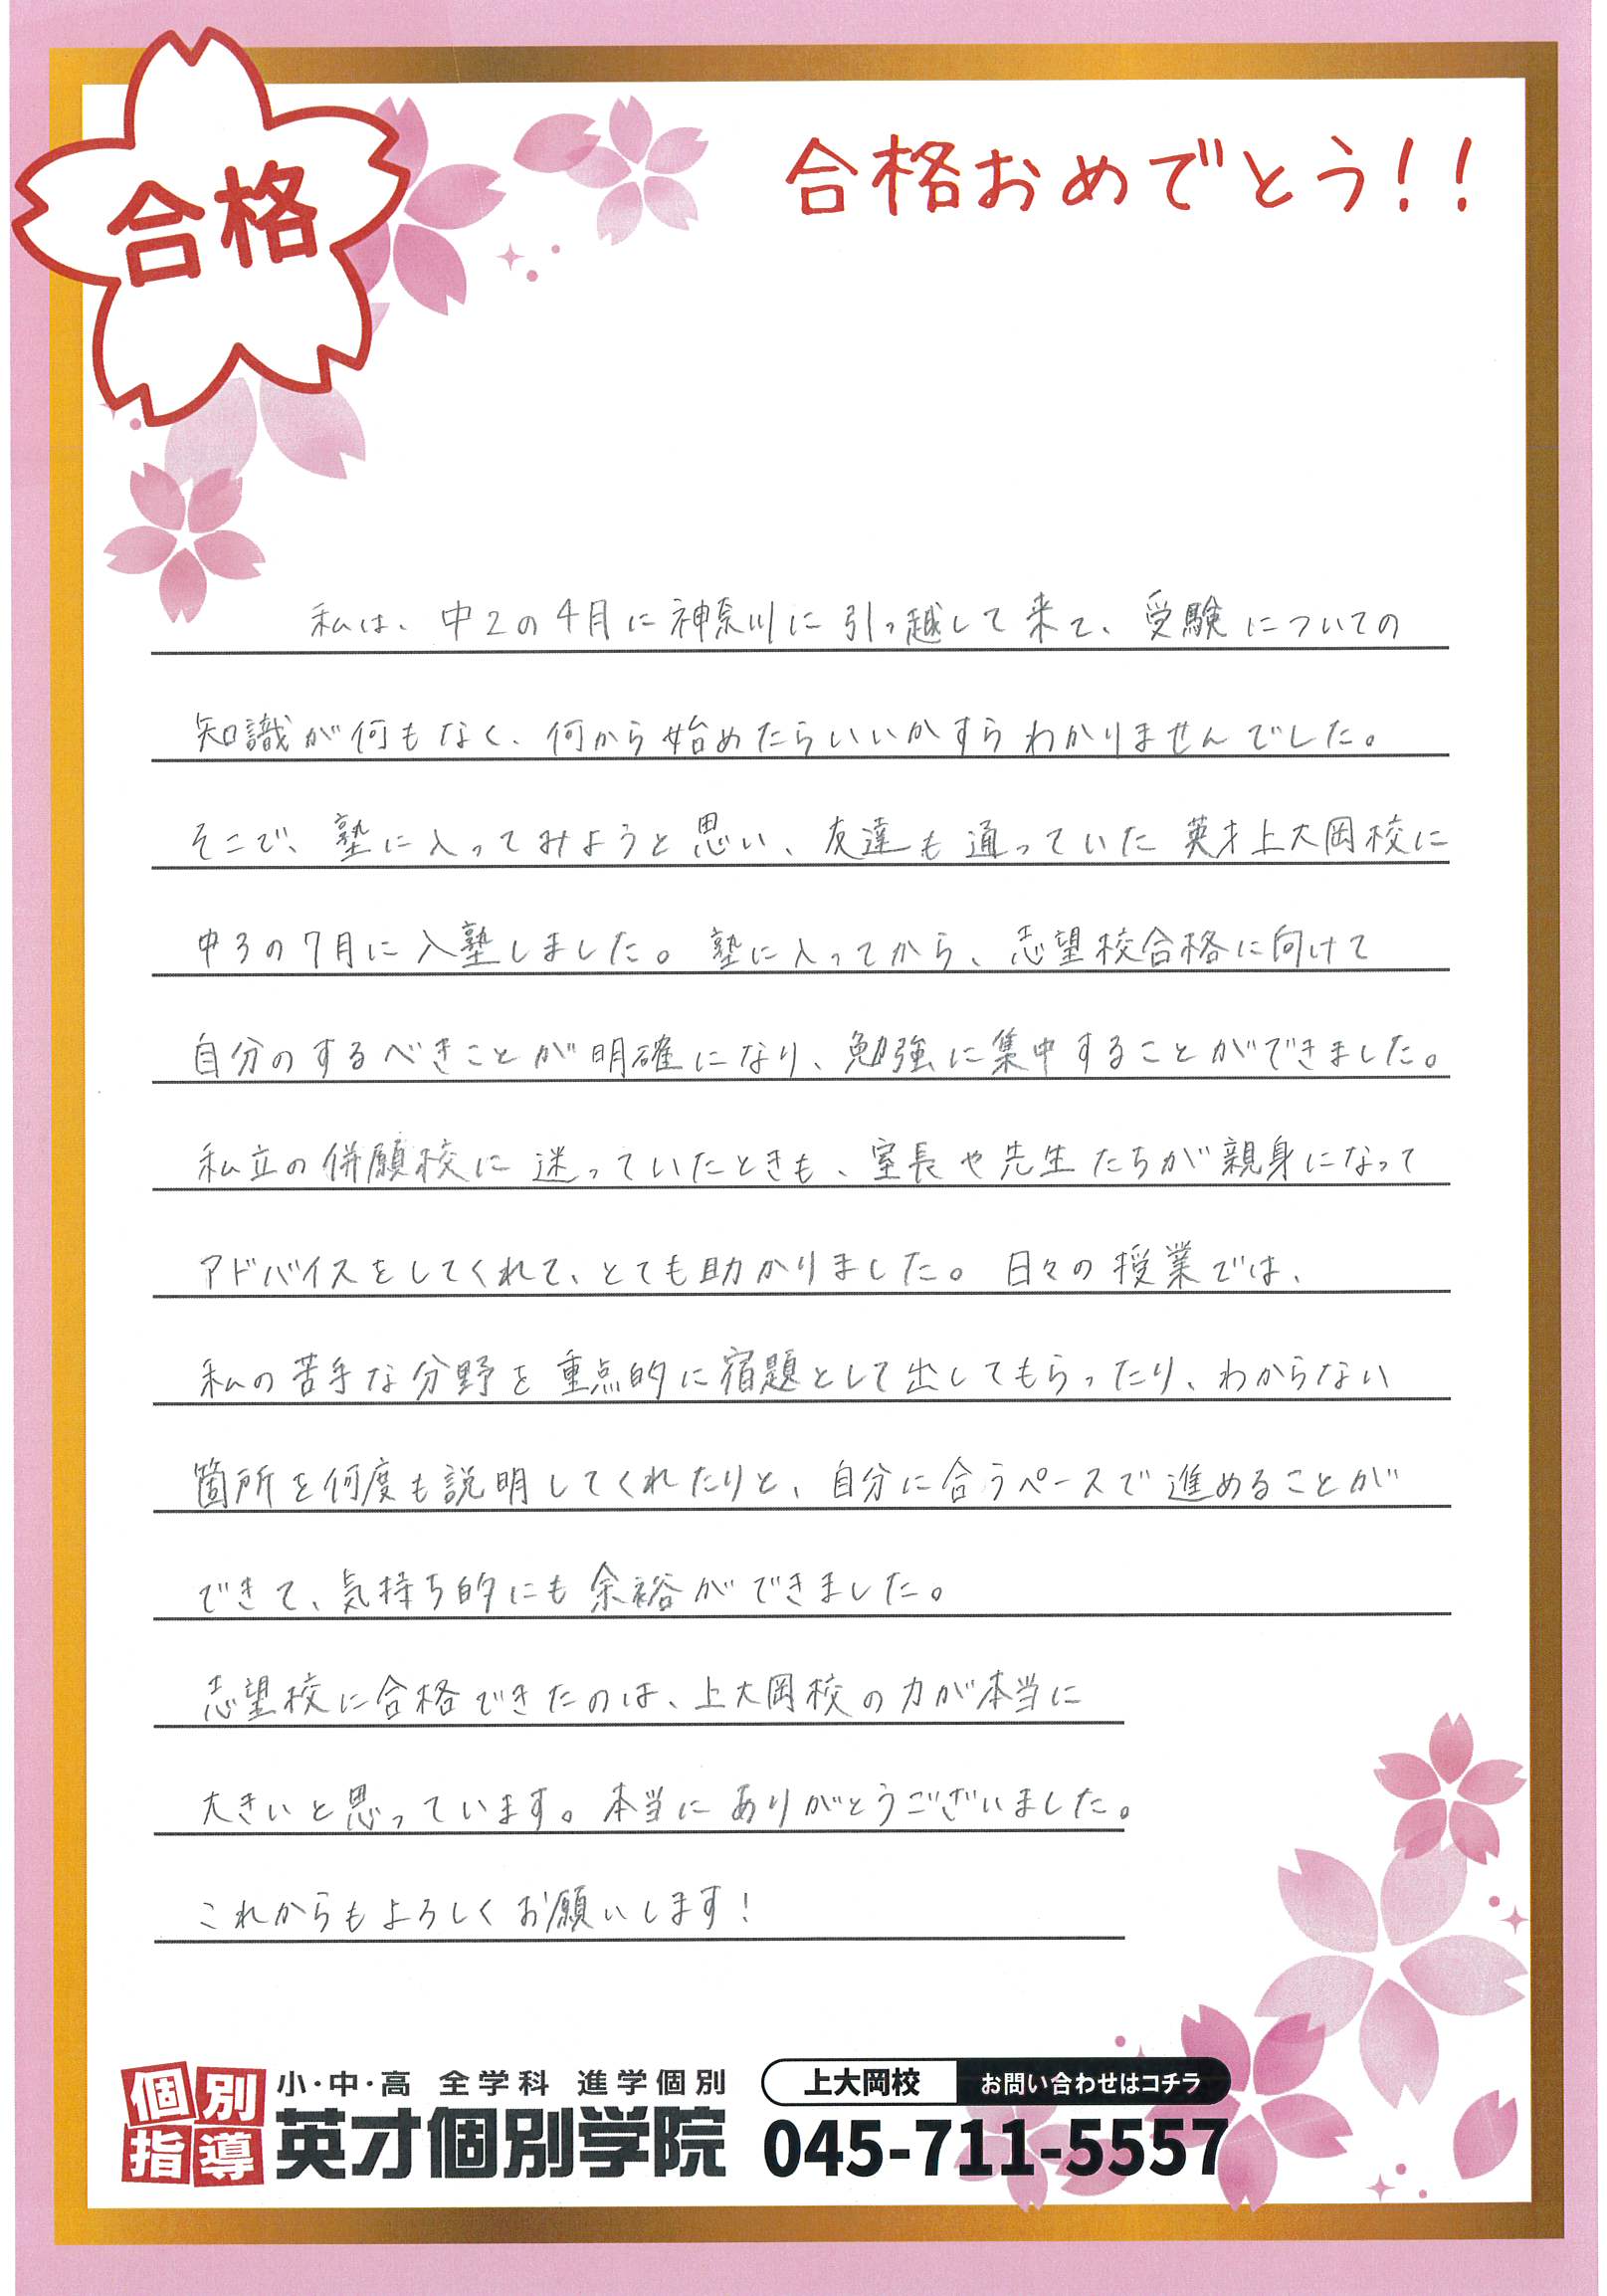 合格
合格おめでとう!!
私は、中2の4月に神奈川に引っ越して来て、受験についての
知識が何もなく、何から始めたらいいかすらわかりませんでした。
そこで、塾に入ってみようと思い、友達も通っていた英才上大岡校に
中3の7月に入塾しました。塾に入ってから、志望校合格に向けて
自分のするべきことが明確になり、勉強に集中することができました。
私立の併願校に迷っていたときも、室長や先生たちが親身になって
アドバイスをしてくれて、とても助かりました。日々の授業では、
私の苦手な分野を重点的に宿題として出してもらったり、わからない
箇所を何度も説明してくれたりと、自分に合うペースで進めることが
できて、気持ち的にも余裕ができました。
志望校に合格できたのは、上大岡校の力が本当に
大きいと思っています。本当にありがとうございました。
これからもよろしくお願いします!
個別指導
小・中・高 全学科 進学個別
英才個別学院
上大岡校 お問い合わせはコチラ
045-711-5557